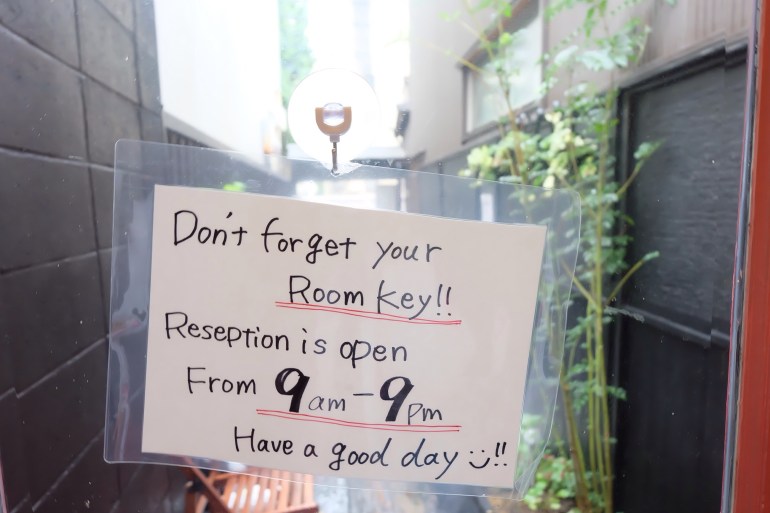 Don't forget your
Room key!!
Reseption is open
From 9am-9pm
Have a good day :)!!